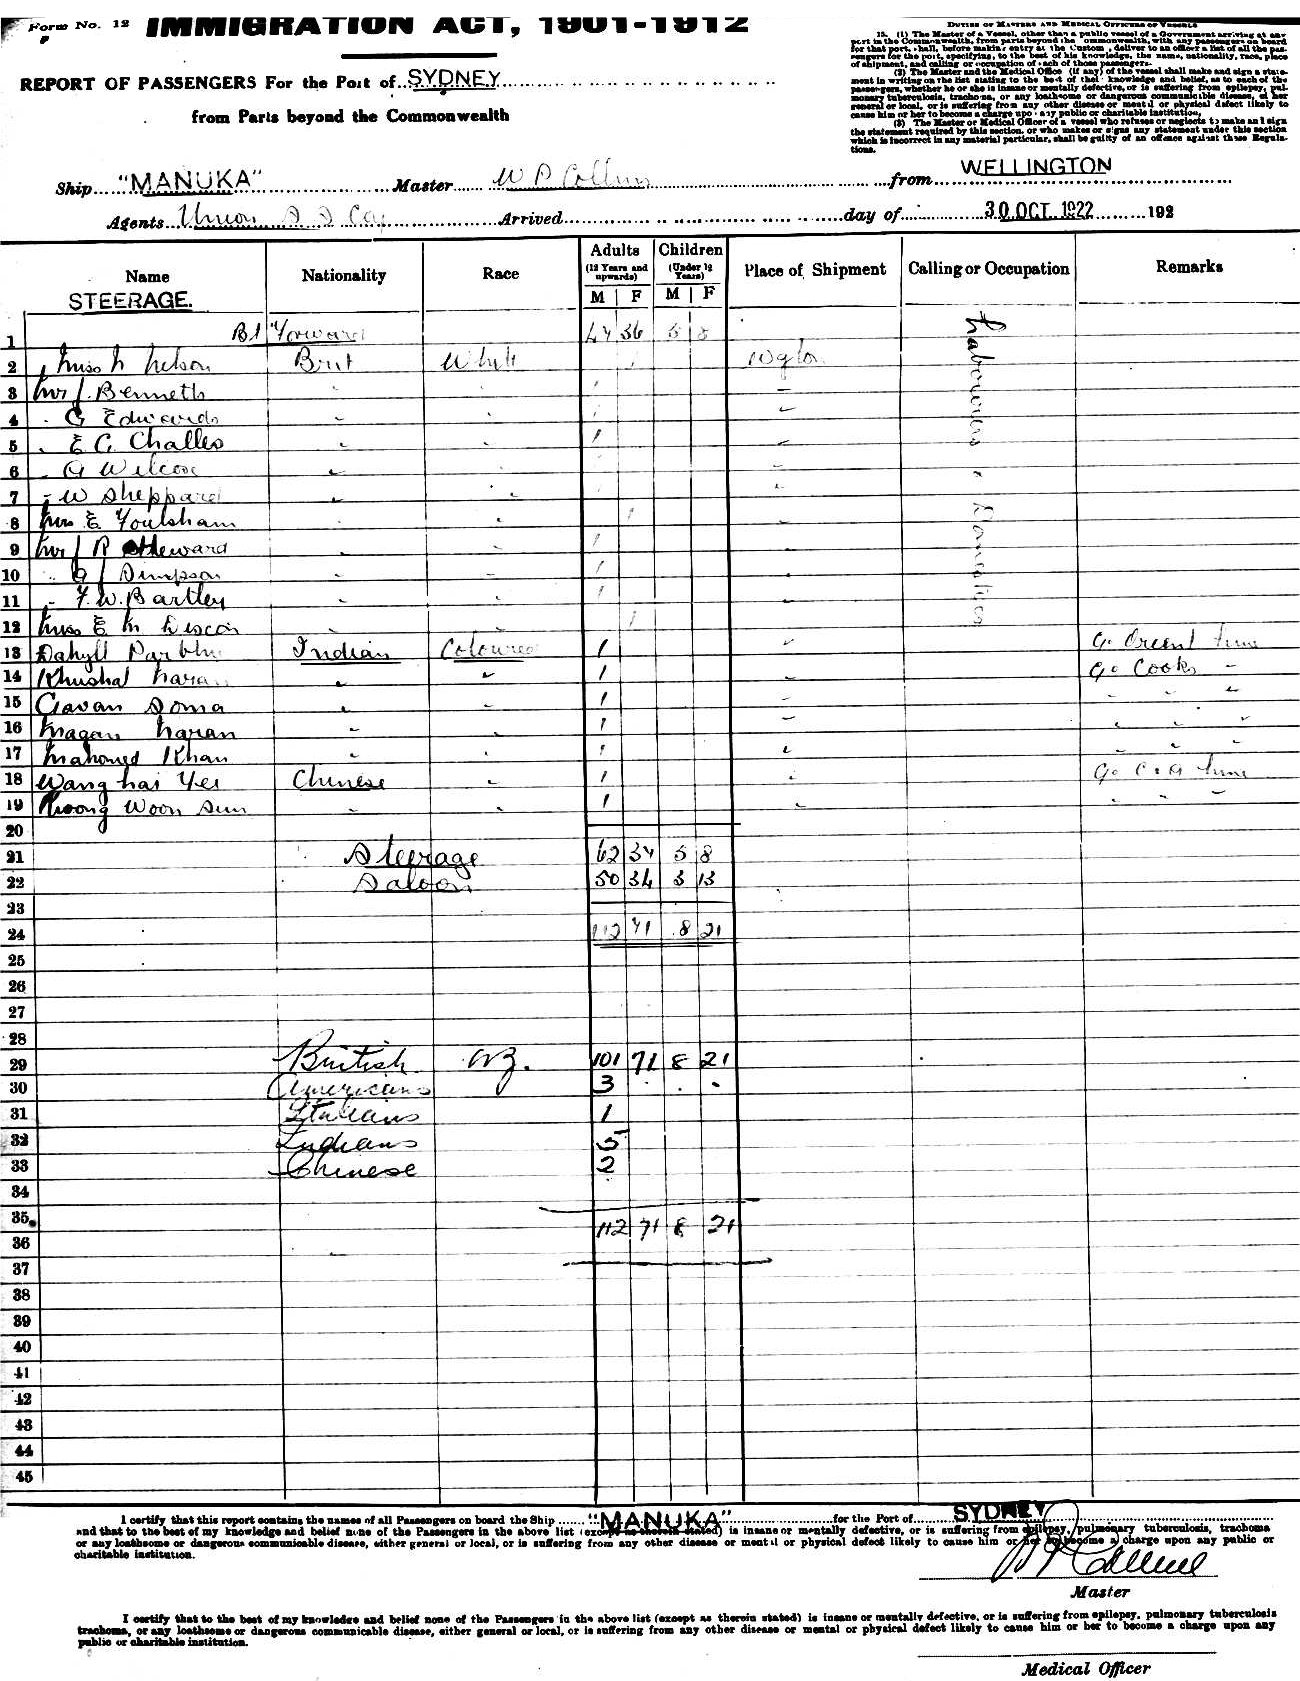 Form No. 12
IMMIGRATION ACT, 1901-1912
REPORT OF PASSENGERS For the Port of SYDNEY
from Parts beyond the Commonwealth
DUTIES OF MASTERS AND MEDICAL OFFICERS OF VESSELS
15. (1) The Master of a Vessel, other than a public vessel of a Government arriving at any
port in the Commonwealth, from parts beyond the ommonwealth, with any passengers on board
for that port, shall, before making entry at the Custom , deliver to an officer a list of all the pas-
sengers for the port, specifying, to the best of his knowledge, the name, nationality, race, place
of shipment, and calling or occupation of each of those passengers.
(2) The Master and the Medical Office (if any) of the vessel shall make and sign a state-
ment in writing on the list stating to the best of their knowledge and belief, as to each of the
passengers, whether he or she is insane or mentally defective, or is suffering from epilepsy, pul-
monary tuberculosis, trachoma, or any loathsome or dangerous communicable disease, either
general or local, or is suffering from any other disease or mental or physical defect likely to
cause him or her to become a charge upon any public or charitable institution,
(3) The Master or Medical Officer of a vessel who refuses or neglects to make and sign
the statement required by this section, or who makes or signs any statement under this section
which is incorrect in any material particular, shall be guilty of an offence against these Regula-
tions.
Ship "MANUKA" Master W P Collins from WELLINGTON
Agents Union S S Coy Arrived day of 30 OCT 1922 192
Name Nationality Race Adults (12 Years and upwards) M F Children (Under 12 Years) M F Place of Shipment Calling or Occupation Remarks
STEERAGE.
1 Bt Forward 36 5 8
2 Miss N Nelson Brit White Wgton
Labourers & Domestics
3 Mr J. Bennett
4 G Edwards
5 E C. Challes
6 A Wilcox
7 W Sheppard
8 Mrs E Foulsham
9 Mr J R Steward
10 G J Simpson
11 F. W. Bartley
12 Miss E M
13 Dahyll Parbhu Indian Coloured 1 Go Orient Line
14 Khushal Naran 1 Go Cooks
15 Gavan Soma 1
16 Magan Naran 1
17 Mahomed Khan 1
18 Wang hai Yei Chinese 1 Go E & A Line
19 Kwong Woon Sun 1
20
21 Steerage 62 37 5 8
22 Saloon 50 34 3 13
23
24 112 71 8 21
25
26
27
28
29 British NZ. 101 71 8 21
30 Americans 3
31 Italians 1
32 Indians 5
33 Chinese 2
34
35 112 71 8 21
36
37
38
39
40
41
42
43
44
45
I certify that this report contains the names of all Passengers on board the Ship "MANUKA" for the Port of SYDNEY
and that to the best of my knowledge and belief none of the Passengers in the above list (except as therein stated) is insane or mentally defective, or is suffering from epilepsy, pulmonary tuberculosis, trachoma
or any loathsome or dangerous communicable disease, either general or local, or is suffering from any other disease or mental or physical defect likely to cause him or her to become a charge upon any public or
charitable institution.
W P Collins
Master
I certify that to the best of my knowledge and belief none of the Passengers in the above list (except as therein stated) is insane or mentally defective, or is suffering from epilepsy, pulmonary tuberculosis
trachoma, or any loathsome or dangerous communicable disease, either general or local, or is suffering from any other disease or mental or physical defect likely to cause him or her to become a charge upon any
public or charitable institution.
Medical Officer